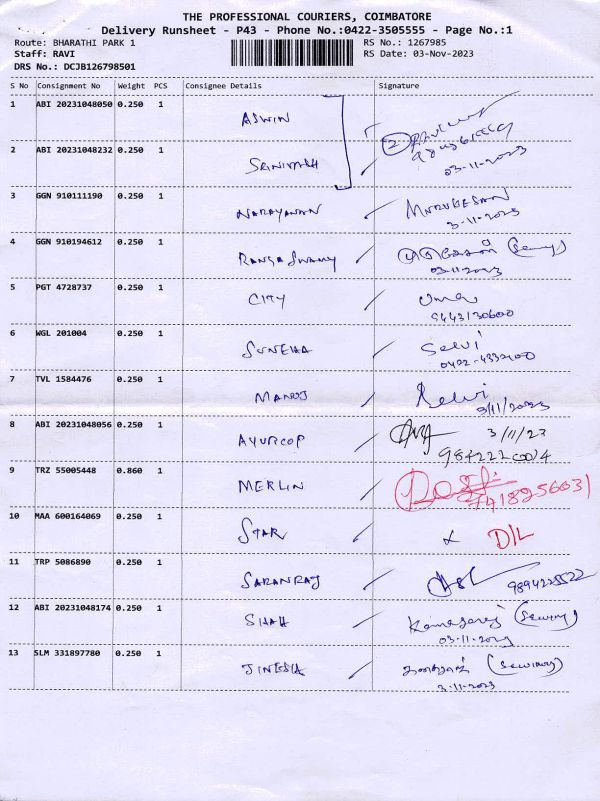 THE PROFESSIONAL COURIERS, COIMBATORE
Delivery Runsheet - P43 - Phone No.:0422-3505555 - Page No.:1
Route: BHARATHI PARK 1 RS No.: 1267985
Staff: RAVI RS Date: 03-Nov-2023
DRS No.: DCJB126798501
S No Consignment No Weight PCS Consignee Details Signature
1 ABI 20231048050 0.250 1 ASWIN
2 ABI 20231048232 0.250 1 SRINIVASH 2
03-11-2023
3 GGN 910111190 0.250 1 NARAYANAN MURUGESAN
3-11-2023
4 GGN 910194612 0.250 1 RANGASWAMY
03-11-2023
5 PGT 4728737 0.250 1 CITY Uma
9443130600
6 WGL 201004 0.250 1 SUNEHA Selvi
0422-4332400
7 TVL 1584476 0.250 1 MANOJ Selvi
3/11/2023
8 ABI 20231048056 0.250 1 AYURCOP 3/11/23
9 TRZ 55005448 0.860 1 MERLIN
7418256031
10 MAA 600164069 0.250 1 STAR D/L
11 TRP 5086890 0.250 1 SARANRAJ 9894225522
12 ABI 20231048174 0.250 1 SHAH Kamaraj
03-11-2023
13 SLM 331897780 0.250 1 JINESH
3-11-2023